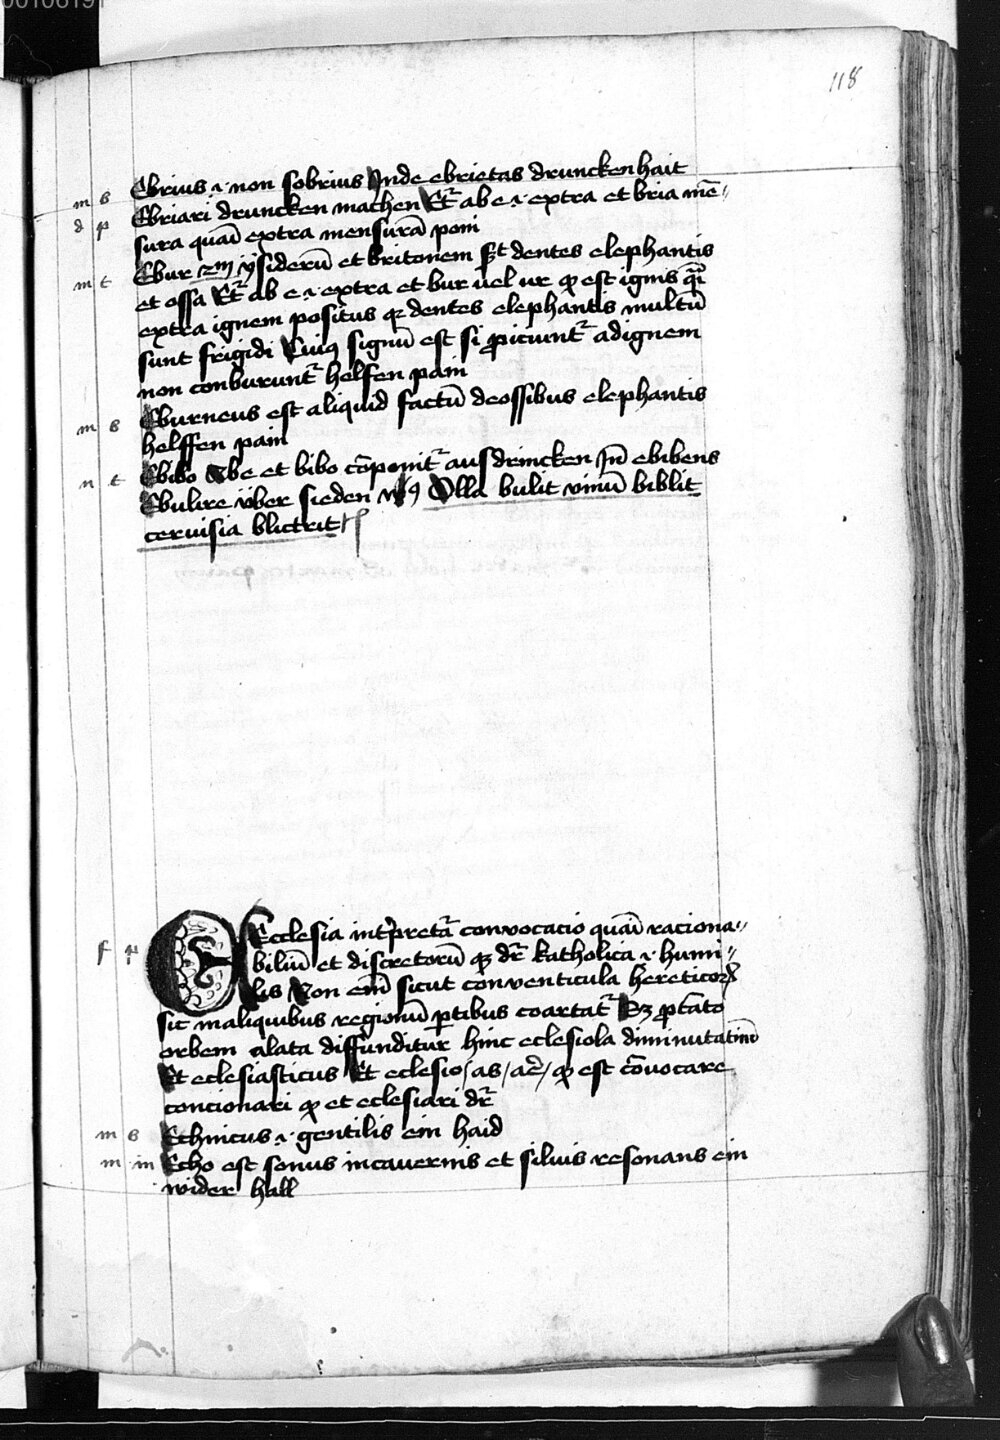 00106191
118
Ebrius .i. non sobrius Inde ebrietas drunckenhait
m s Ebriari druncken machen Et̄ ab e .i. extra et bria mē-
d p sura quaī extra mensurā poni
Ebur 2m ysiderū et britonem st̄ dentes elephantis
m t et ossa Et̄ ab e .i. extra et bur uel ur qd est ignis q̄i
extra ignem positus qr dentes elephantis multū
sunt frigidi Cuiꝰ signū est si ꝓiciunt̄ ad ignem
non conburunt̄ helfen pain
m s Eburneus est aliquid factū de ossibus elephantis
helffen pain
n t Ebibo Ab e et bibo cōponit̄ ausdrincken Jn̄ ebibens
Ebulire v̈ber sieden vꝰ Olla bulit vinū biblit
ceruisia blictrit
f p Ecclesia intp̄retat̄ convocacio quaī raciona-
biliū et discretorū qꝫ dr̄ katholica .i. humi-
lis Non em̄ sicut conventicula hereticoꝝ
sic in aliquibus regionū ꝑtibus coartat̄ Sꝫ ꝑ totā
orbem alata diffunditur hinc eclesiola diminutatiuū
Et eclesiasticus Et eclesio/as/ac̄/ qd est cōuocare
concionari qd et eclesiari dr̄
m s Ethnicus .i. gentilis ein haid
m in Echo est sonus in cauernis et siluis resonans ein
wider hall